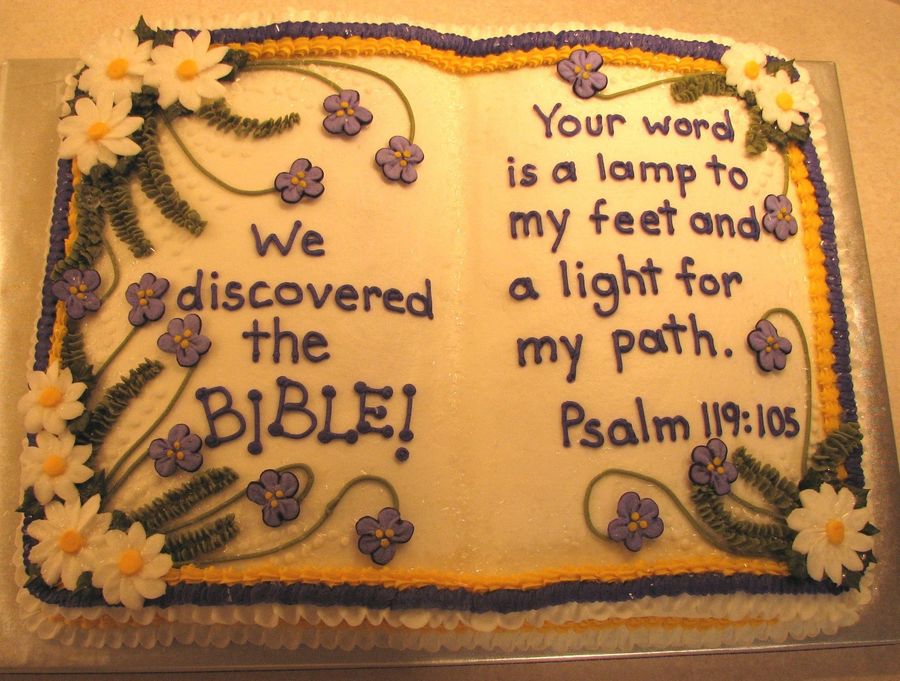 We
discovered
the
BIBLE!
Your word
is a lamp to
my feet and
a light for
my path.
Psalm 119:105